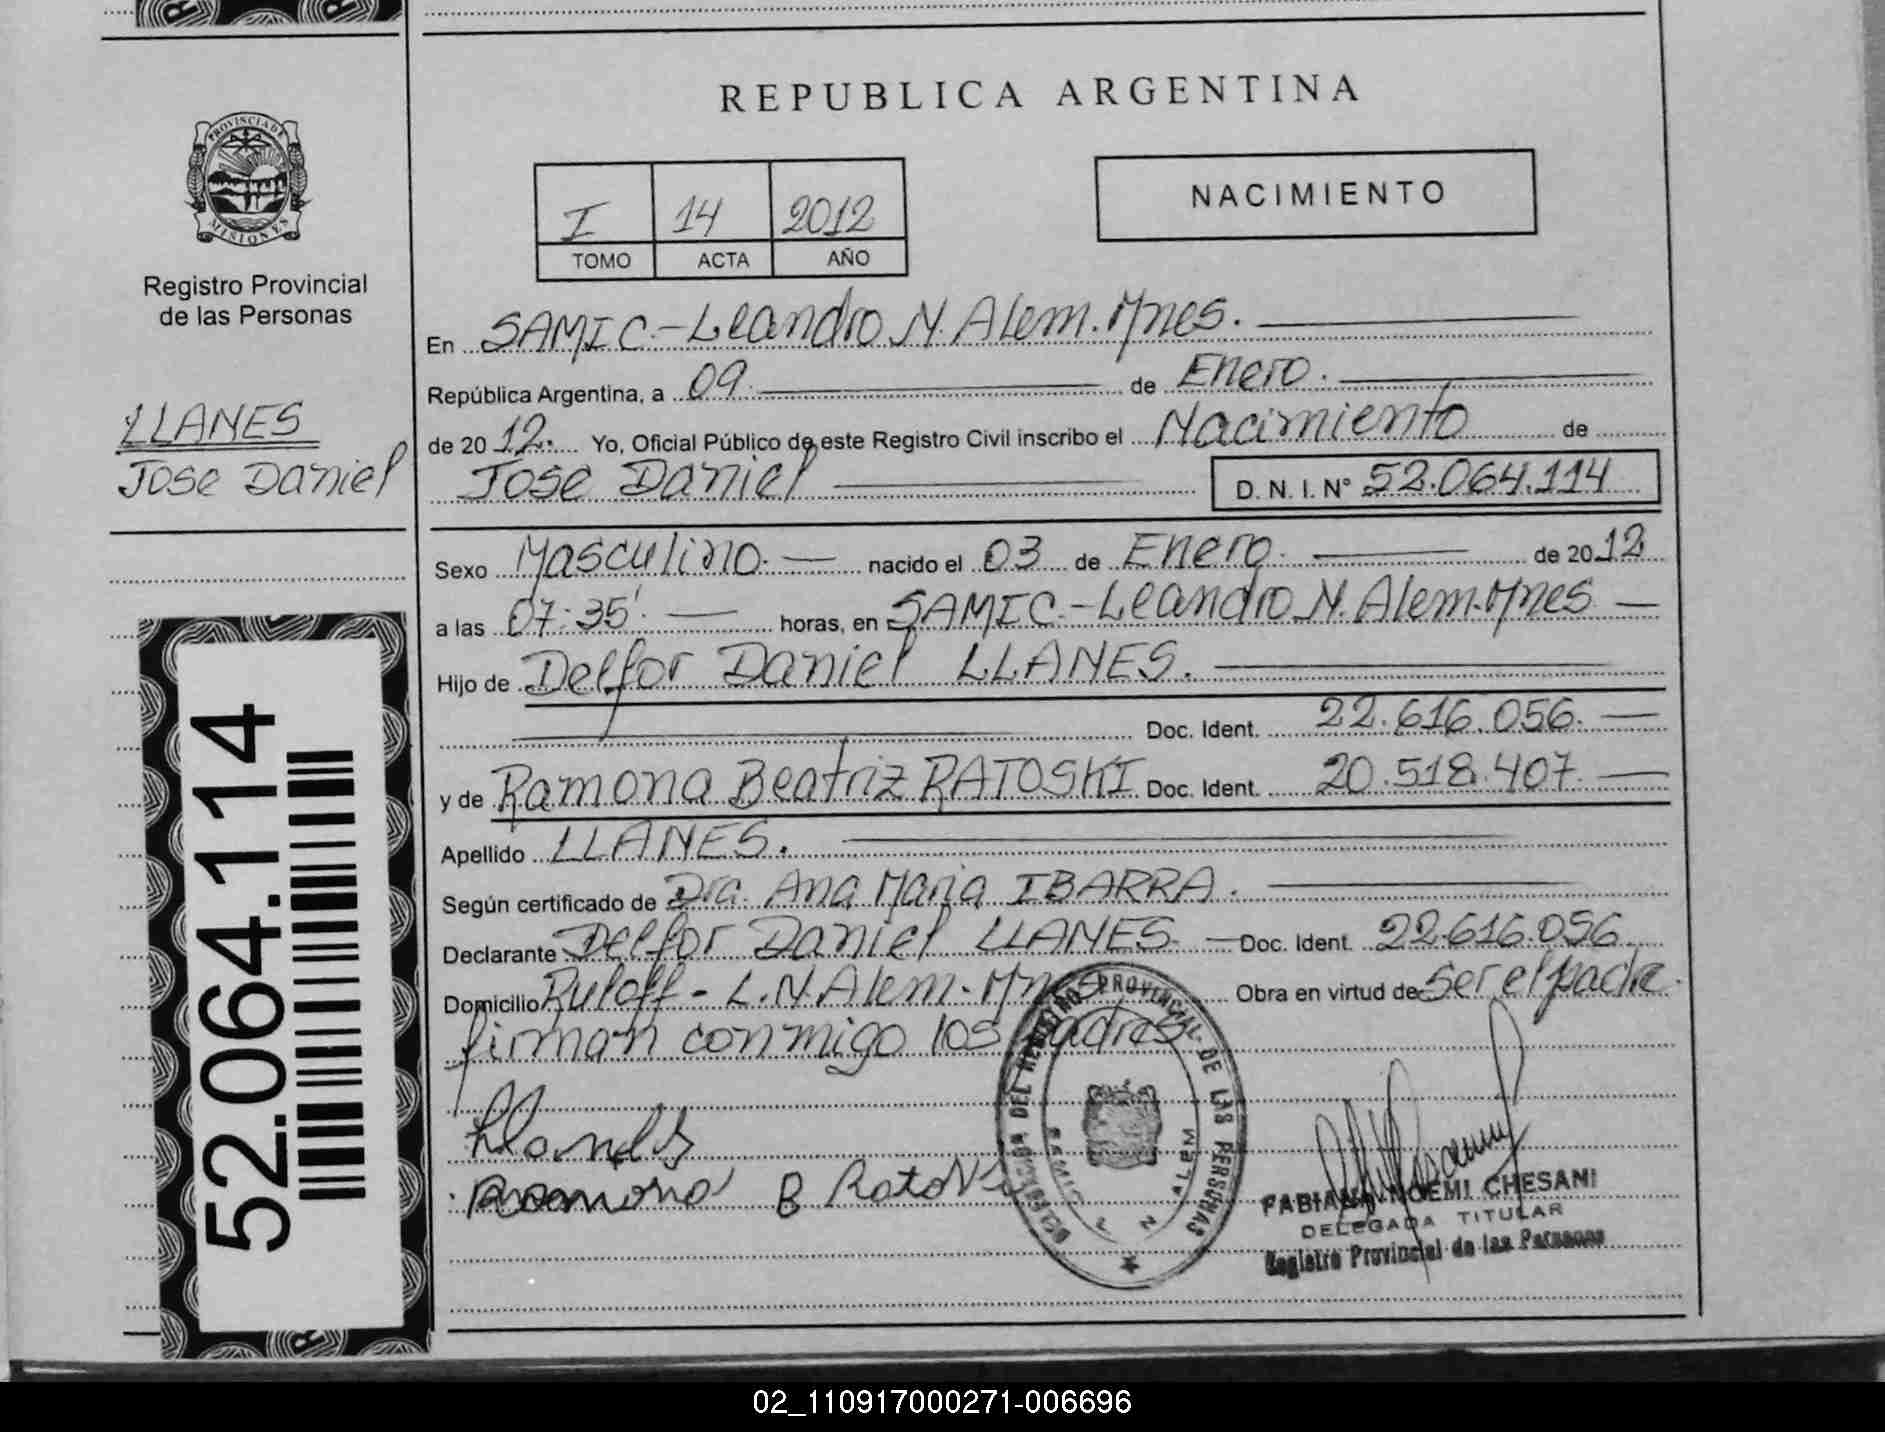 REPUBLICA ARGENTINA
PROVINCIA DE
MISIONES
Registro Provincial
de las Personas
LLANES
Jose Daniel
52.064.114
I 14 2012
TOMO ACTA AÑO
NACIMIENTO
En SAMIC.-Leandro N. Alem. Mnes.
República Argentina, a 09. de Enero.
de 2012. Yo, Oficial Público de este Registro Civil inscribo el Nacimiento de
Jose Daniel D. N. I. N° 52.064.114
Sexo Masculino. nacido el 03 de Enero. de 2012
a las 07:35'. horas, en SAMIC.-Leandro N. Alem.-Mnes
Hijo de Delfor Daniel LLANES.
Doc. Ident. 22.616.056.
y de Ramona Beatriz RATOSKI Doc. Ident. 20.518.407.
Apellido LLANES.
Según certificado de Dra. Ana Maria IBARRA.
Declarante Delfor Daniel LLANES Doc. Ident. 22.616.056
Domicilio Ruloff - L.N.Alem.-Mnes Obra en virtud de ser el padre.
firman conmigo los padres
Llanes
Ramona B Ratoski
DELEGACION DEL REGISTRO PROVINCIAL DE LAS PERSONAS
SAMIC L N ALEM
FABIANA NOEMI CHESANI
DELEGADA TITULAR
Registro Provincial de las Personas
02_110917000271-006696